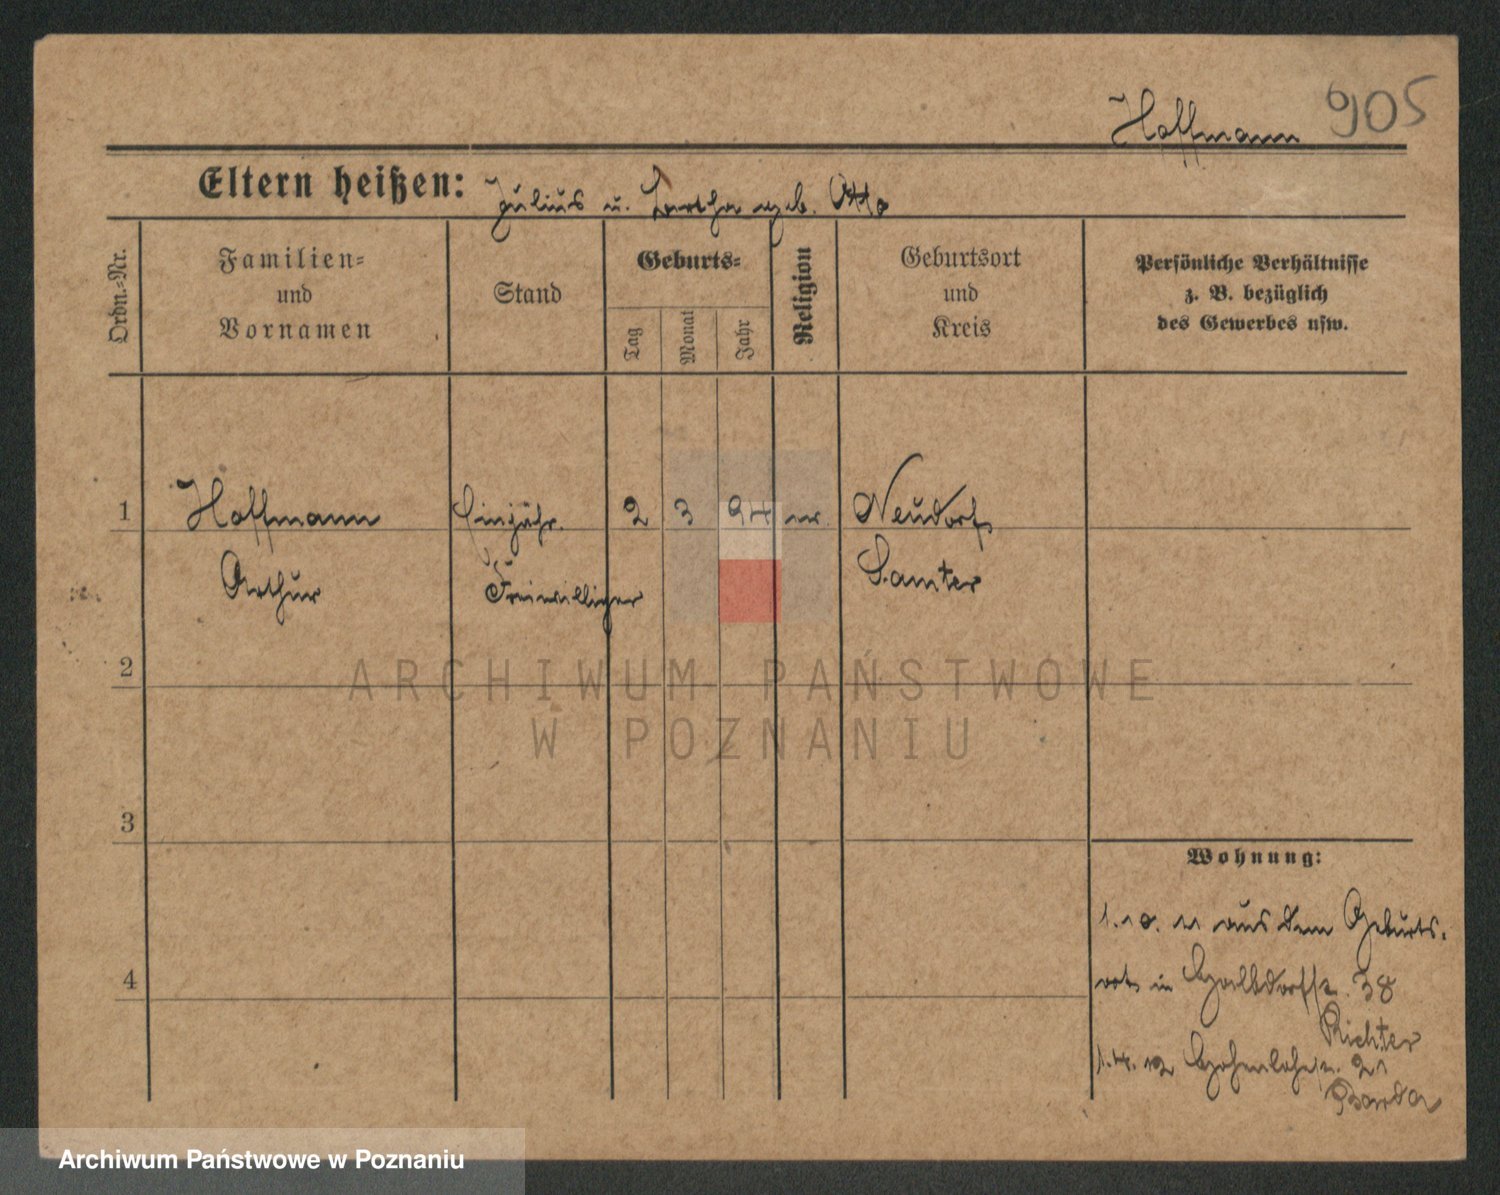 Hoffmann 905
Eltern heißen: Julius u. Bertha geb. Otto
Ordn.-Nr.
Familien-
und
Vornamen
Stand
Geburts-
Tag
Monat
Jahr
Religion
Geburtsort
und
Kreis
Persönliche Verhältnisse
z. B. bezüglich
des Gewerbes usw.
1 Hoffmann Einjähr. 2 3 94 ev. Neudorf
Arthur Freiwilliger Samter
2
3
4
Wohnung:
1. 10. 11 aus dem Geburts-
ort in 38
Richter
1. 4. 12 Hohenlohestr. 21
ARCHIWUM PAŃSTWOWE
W POZNANIU
Archiwum Państwowe w Poznaniu